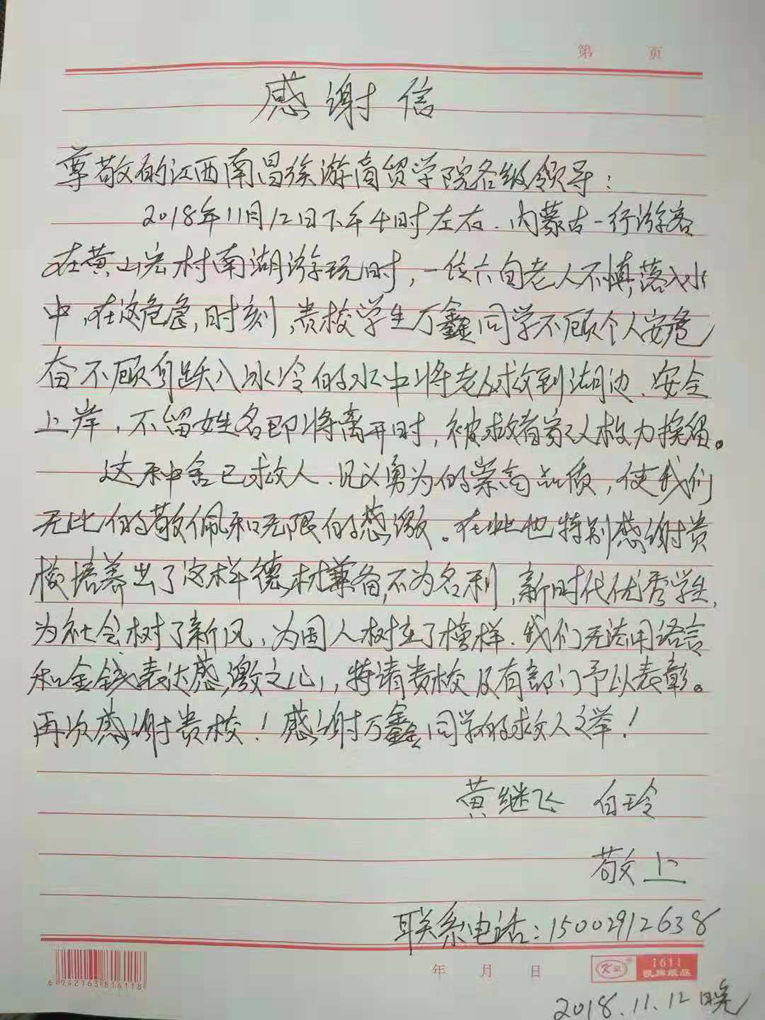 第 页
感谢信
尊敬的江西南昌徐游商贸学院各级领导：
2018年11月12日下午4时左右．内蒙古一行游客
在黄山宏村南湖游玩时，一位六旬老人不慎落入水
中，在这危急，时刻，贵校学生万鑫同学不顾个人安危
奋不顾身跃入冰冷的水中将老人救到湖边、安全
上岸，不留姓名即将离开时，被救者家人极力挽留。
这种舍已救人．见义勇为的崇高品质，使我们
无比的敬佩和无限的感激。在此也特别感谢贵
校培养出了这样德材兼备，不为名利，新时代优秀学生，
为社会树了新风，为国人树立了榜样．我们无法用语言
和金钱表达感激之心，特请贵校及有部门予以表彰。
再次感谢贵校！感谢万鑫同学的救人之举！
黄继飞 白玲
敬上
联系电话：15002912638
年 月 日
1611
6942163816118
2018.11.12晚